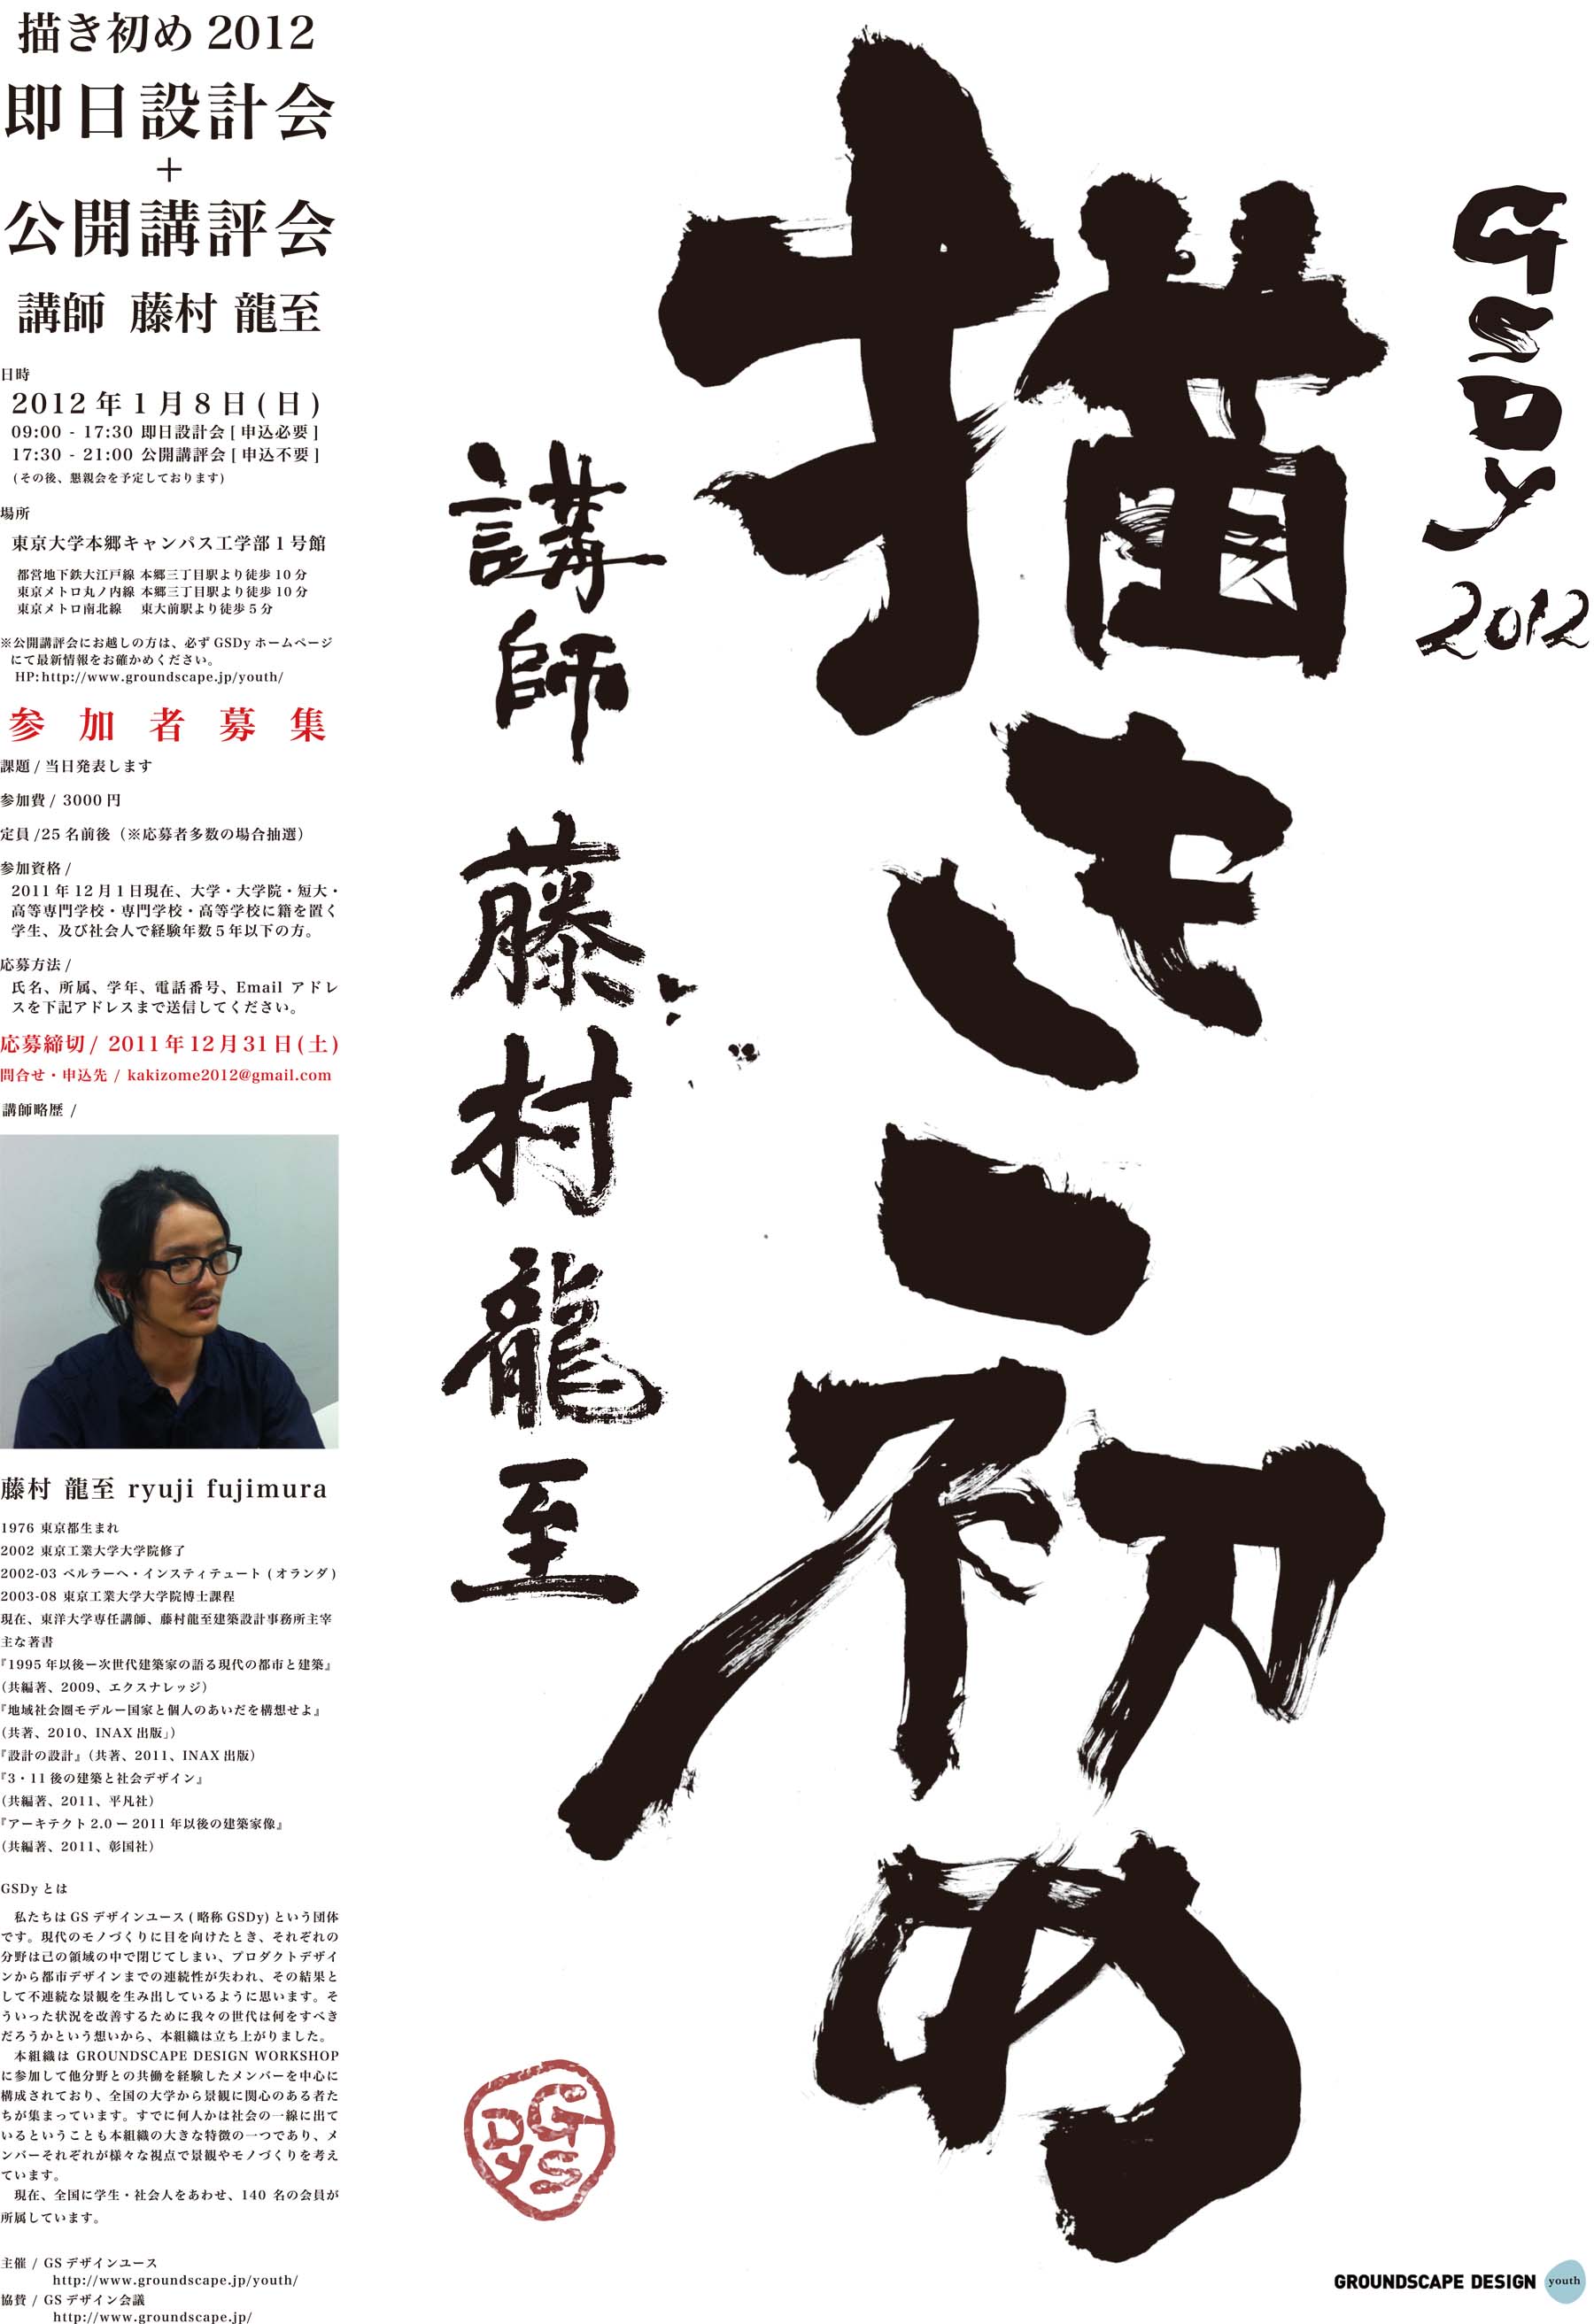 描き初め 2012
即日設計会
+
公開講評会
講師 藤村 龍至
日時
2012 年 1 月 8 日 ( 日 )
09:00 - 17:30 即日設計会 [ 申込必要 ]
17:30 - 21:00 公開講評会 [ 申込不要 ]
(その後、懇親会を予定しております)
場所
東京大学本郷キャンパス工学部 1 号館
都営地下鉄大江戸線 本郷三丁目駅より徒歩 10 分
東京メトロ丸ノ内線 本郷三丁目駅より徒歩 10 分
東京メトロ南北線 東大前駅より徒歩 5 分
※公開講評会にお越しの方は、必ず GSDy ホームページ
にて最新情報をお確かめください。
HP:http://www.groundscape.jp/youth/
参加者募集
課題 / 当日発表します
参加費 / 3000 円
定員 /25 名前後（※応募者多数の場合抽選）
参加資格 /
2011 年 12 月 1 日現在、大学・大学院・短大・
高等専門学校・専門学校・高等学校に籍を置く
学生、及び社会人で経験年数 5 年以下の方。
応募方法 /
氏名、所属、学年、電話番号、Email アドレ
スを下記アドレスまで送信してください。
応募締切 / 2011 年 12 月 31 日 ( 土 )
問合せ・申込先 / kakizome2012@gmail.com
講師略歴 /
藤村 龍至 ryuji fujimura
1976 東京都生まれ
2002 東京工業大学大学院修了
2002-03 ベルラーヘ・インスティテュート ( オランダ )
2003-08 東京工業大学大学院博士課程
現在、東洋大学専任講師、藤村龍至建築設計事務所主宰
主な著書
『1995 年以後ー次世代建築家の語る現代の都市と建築』
（共編著、2009、エクスナレッジ）
『地域社会圏モデルー国家と個人のあいだを構想せよ』
（共著、2010、INAX 出版」）
『設計の設計』（共著、2011、INAX 出版）
『3・11 後の建築と社会デザイン』
（共編著、2011、平凡社）
『アーキテクト 2.0 ー 2011 年以後の建築家像』
（共編著、2011、彰国社）
GSDy とは
私たちは GS デザインユース ( 略称 GSDy) という団体
です。現代のモノづくりに目を向けたとき、それぞれの
分野は己の領域の中で閉じてしまい、プロダクトデザイ
ンから都市デザインまでの連続性が失われ、その結果と
して不連続な景観を生み出しているように思います。そ
ういった状況を改善するために我々の世代は何をすべき
だろうかという想いから、本組織は立ち上がりました。
本組織は GROUNDSCAPE DESIGN WORKSHOP
に参加して他分野との共働を経験したメンバーを中心に
構成されており、全国の大学から景観に関心のある者た
ちが集まっています。すでに何人かは社会の一線に出て
いるということも本組織の大きな特徴の一つであり、メ
ンバーそれぞれが様々な視点で景観やモノづくりを考え
ています。
現在、全国に学生・社会人をあわせ、140 名の会員が
所属しています。
主催 / GS デザインユース
http://www.groundscape.jp/youth/
協賛 / GS デザイン会議
http://www.groundscape.jp/
GSDy 2012
描き初め
講師 藤村龍至
GSDy
GROUNDSCAPE DESIGN youth